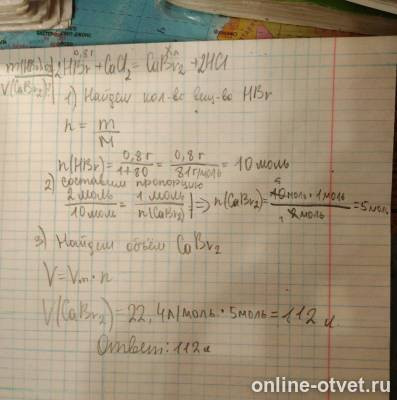 0,8г xл
m(HBr) 2HBr + CaCl₂ = CaBr₂ + 2HCl
V(CaBr₂)?
1) Найдем кол-во вещ-во HBr
n = m/M
n(HBr) = 0,8г/1+80 = 0,8г/81г/моль = 10 моль
2) составим пропорцию
2 моль/10 мол = 1 моль/n(CaBr₂) | => n(CaBr₂) = 10 моль · 1 моль/2 моль = 5 мол
3) Найдем объём CaBr₂
V = Vm · n
V(CaBr₂) = 22,4л/моль · 5моль = 112 л.
Ответ: 112л
online-otvet.ru